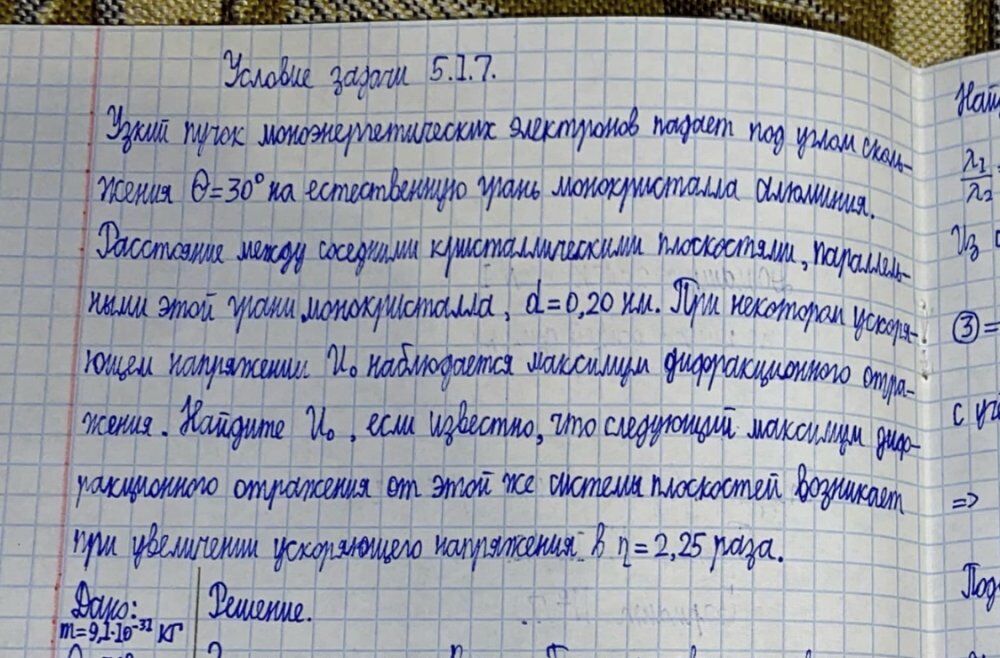 Условие задачи 5.1.7.
Узкий пучок моноэнергетических электронов падает под углом сколь-
жения θ=30° на естественную грань монокристалла алюминия.
Расстояние между соседними кристаллическими плоскостями, параллель-
ными этой грани монокристалла, d=0,20 нм. При некотором ускоря-
ющем напряжении U₀ наблюдается максимум дифракционного отра-
жения. Найдите U₀, если известно, что следующий максимум диф-
ракционного отражения от этой же системы плоскостей возникает
при увеличении ускоряющего напряжения в η=2,25 раза.
Дано:
m=9,1·10⁻³¹ кг
Решение.
λ₁
λ₂
Из
③=
с
=>